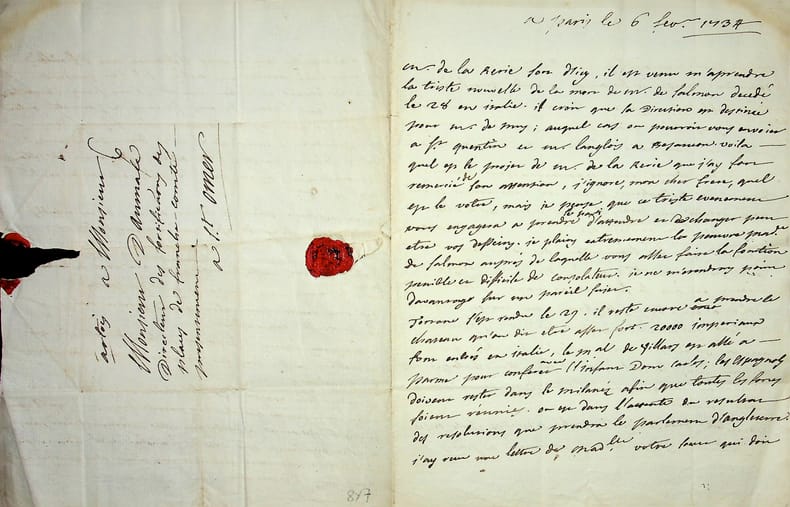 artois a Monsieur
Monsieur D'aumale
Directeur des fortifications des
places de franche comté
presentement
a St. omer
847
a paris le 6 fevr. 1734
mr. de la Rerie sort d'icy, il est venu m'aprendre
la triste nouvelle de la mort de mr. de salmon decedé
le 28 en italie. il croit que la Direction est destinée
pour mr. de muy; auquel cas on pourroit vous envoier
a st quentin et mr. langlois a Besancon. voila
quel est le projet de mr. de la Rerie que j'ay fort
remercié de son attention, j'ignore, mon cher frere, quel
est le votre, mais je pense que ce triste evenement
vous engagera a prendre d'attendre et de changer peut
etre vos desseins. je plains extremement la pauvre made
de salmon aupres de laquelle vous allez faire la fonction
penible et difficile de consolateur. je ne m'etendray point
davantage sur un pareil sujet.
Tortone s'est rendue le 29. il reste encore a prendre le
chateau qu'on dit etre assez fort. 20000 imperiaux
sont entrés en italie, le mal de Villars est allé a
parme pour conferer avec l'infant Dom Carlos; les Espagnols
doivent rester dans le milanez afin que toutes les forces
soient reunies. on est dans l'attente du resultat
des resolutions que prendra le parlement d'angleterre.
j'ay reçu une lettre de madlle votre soeur qui doit